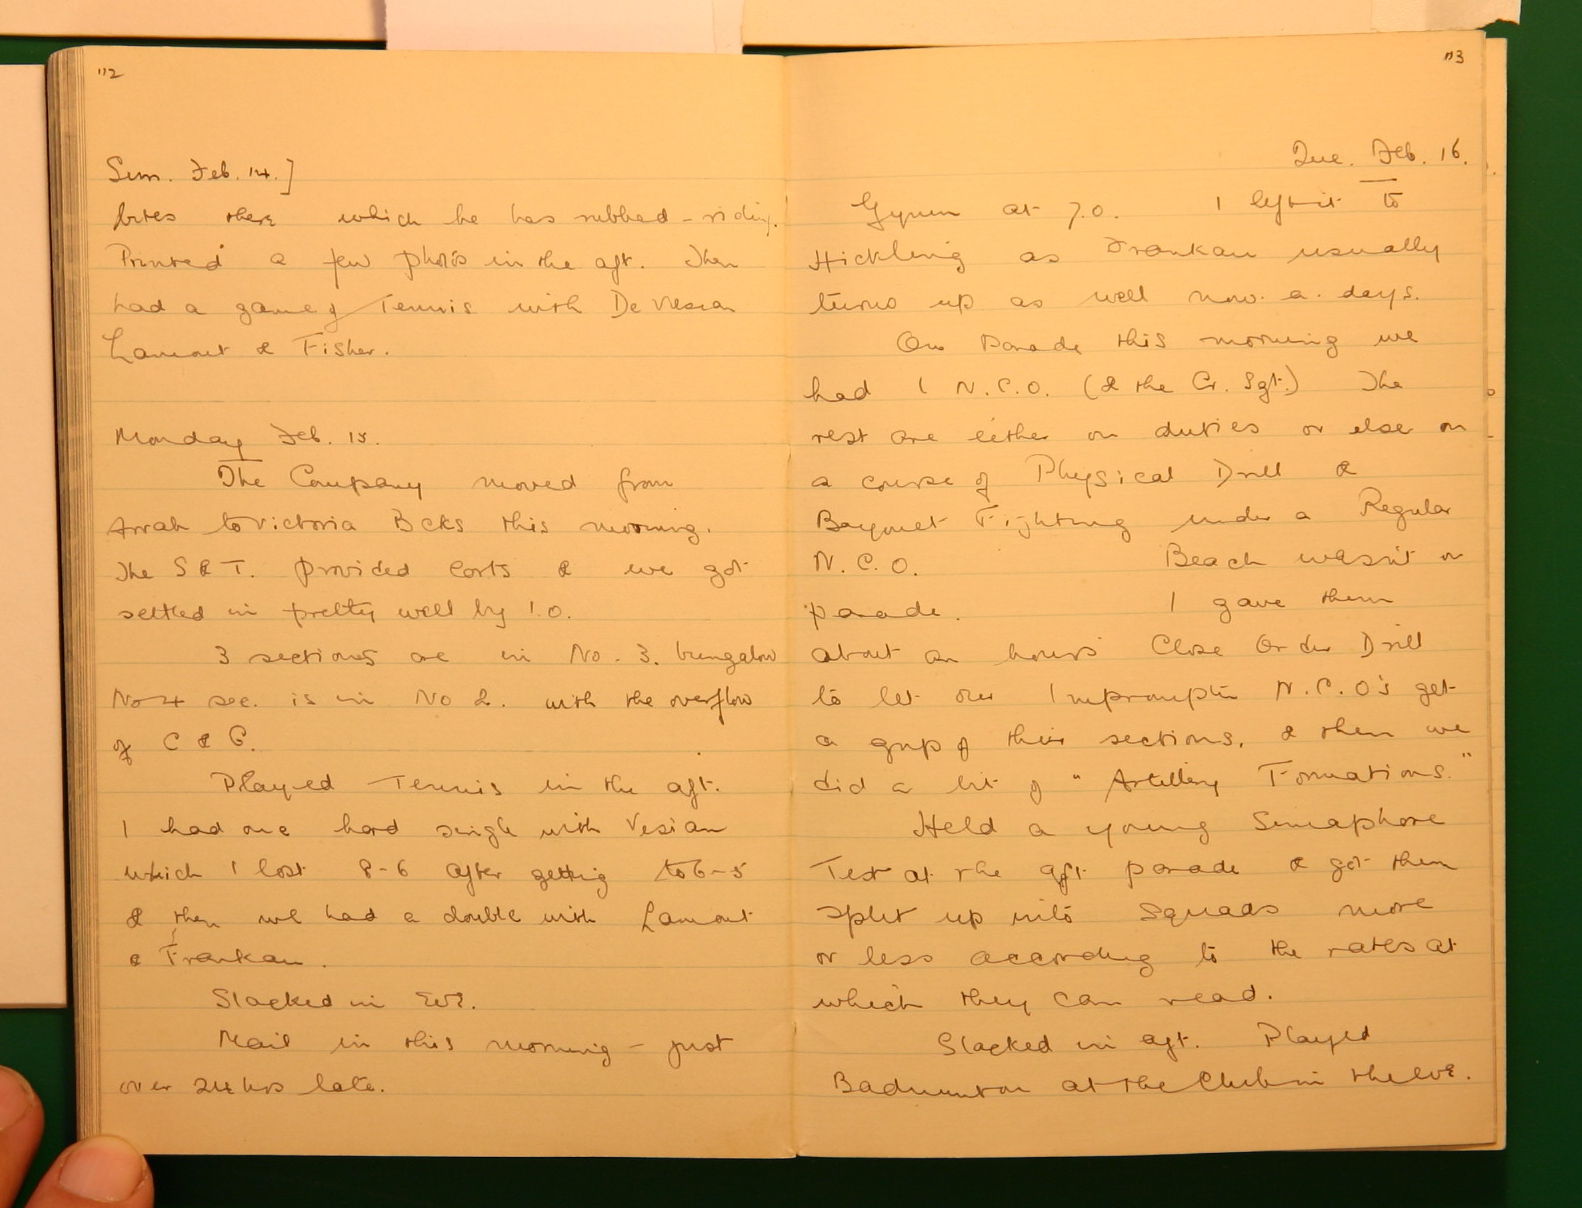 112
Sun. Feb. 14.]
bites there which he has rubbed - riding.
Printed a few photos in the aft. Then
had a game of Tennis with De Vesian
Lamont & Fisher.
Monday Feb. 15.
The Company moved from
Arrah to Victoria Bcks this morning.
The S & T. provided carts & we got
settled in pretty well by 1.0.
3 sections are in No. 3. bungalow
No 4 sec. is in No 2. with the overflow
of C & G.
Played Tennis in the aft.
I had one hard single with Vesian
which I lost 8-6 after getting to 6-5
& then we had a double with Lamont
& Frankau.
Slacked in eve.
Mail in this morning - just
over 24 hrs late.
113
Tue. Feb. 16.
Gym at 7.0. I left it to
Hickling as Frankau usually
turns up as well now. a. days.
On Parade this morning we
had 1 N.C.O. (& the Cr. Sgt.) The
rest are either on duties or else on
a course of Physical Drill &
Bayonet Fighting under a Regular
N.C.O. Beach wasn't on
parade. I gave them
about an hours' Close Order Drill
to let our Impromptu N.C.O's get
a grip of their sections, & then we
did a bit of "Artillery Formations."
Held a young Semaphore
Test at the aft parade & got them
split up into Squads more
or less according to the rates at
which they can read.
Slacked in aft. Played
Badminton at the Club in the eve.